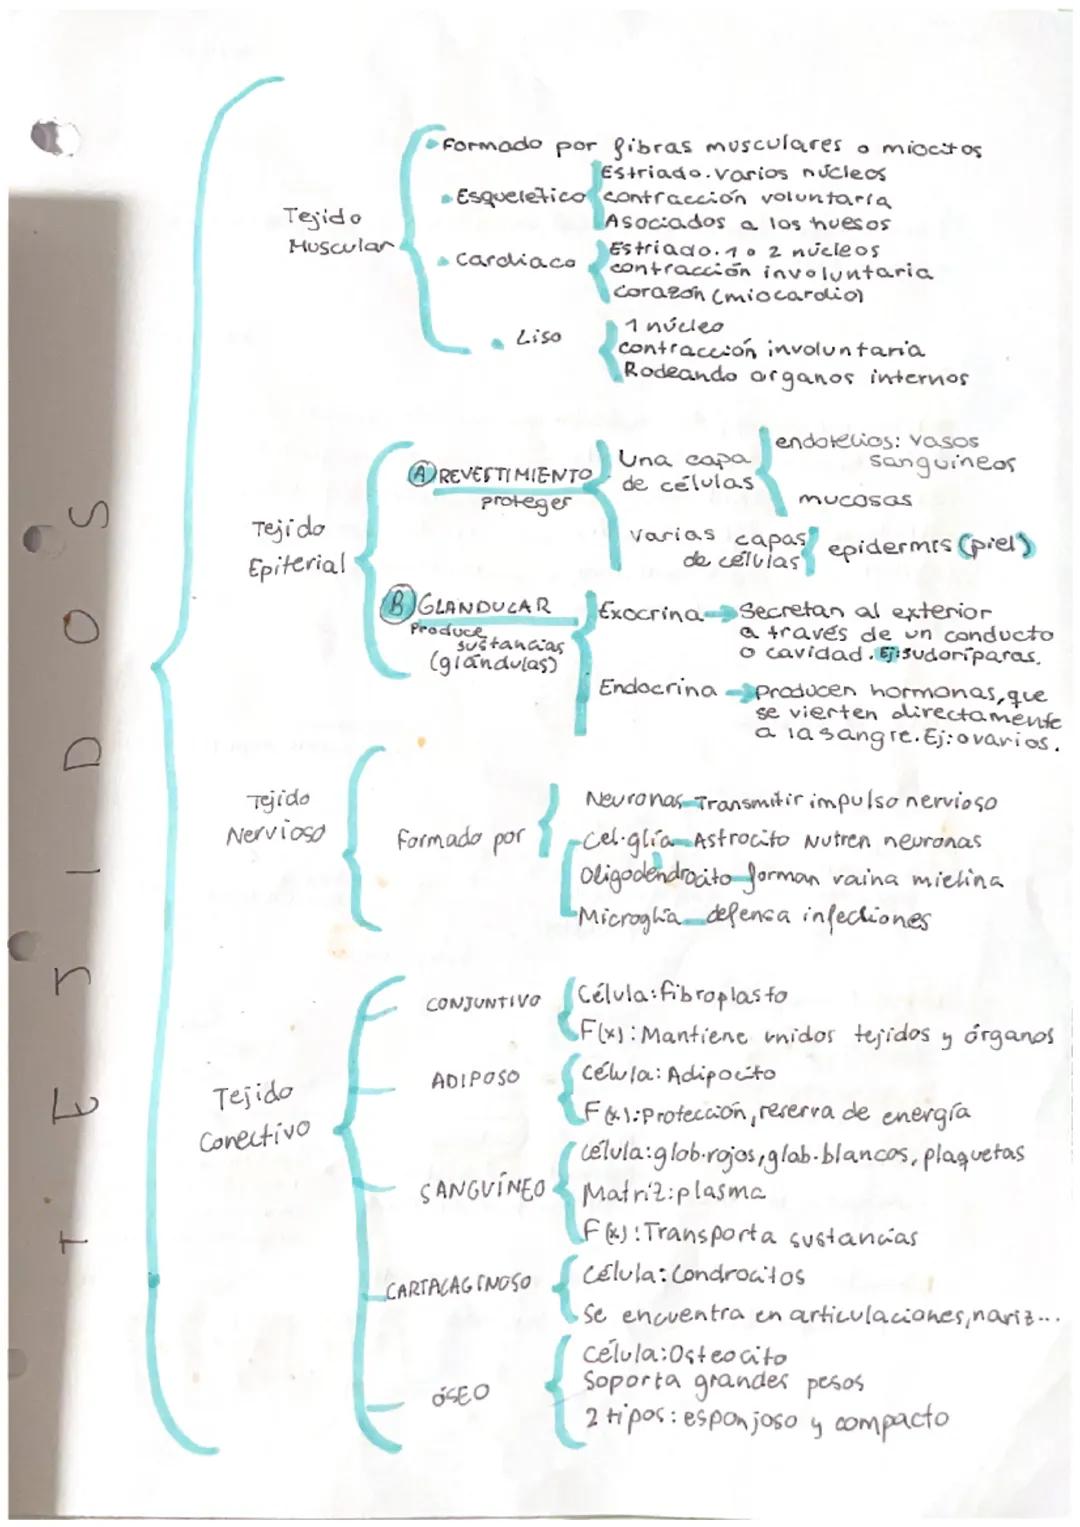 TEJIDOS
Tejido
Muscular
Formado por fibras musculares o miocitos
Esqueletico
Estriado. varios núcleos
contracción voluntaria
Asociados a los huesos
Cardiaco
Estriado. 1 o 2 núcleos
contracción involuntaria
corazón (miocardio)
Liso
1 núcleo
contracción involuntaria
Rodeando organos internos
Tejido
Epiterial
A REVESTIMIENTO
proteger
Una capa
de células
endotelios: vasos
sanguineos
mucosas
varias capas
de células
epidermis (piel)
B GLANDULAR
Produce
sustancias
(glándulas)
Exocrina → Secretan al exterior
a través de un conducto
o cavidad. Ej: sudoríparas.
Endocrina → producen hormonas, que
se vierten directamente
a la sangre. Ej: ovarios.
Tejido
Nervioso
Formado por
Neuronas - Transmitir impulso nervioso
Cel. glía - Astrocito Nutren neuronas
Oligodendrocito - forman vaina mielina
Microglía - defensa infecciones
Tejido
Conectivo
CONJUNTIVO
Célula: fibroplasto
F(x): Mantiene unidos tejidos y órganos
ADIPOSO
Célula: Adipocito
F(x): Protección, reserva de energía
SANGUÍNEO
célula: glob. rojos, glob. blancos, plaquetas
Matriz: plasma
F(x): Transporta sustancias
CARTALAGINOSO
Célula: Condrocitos
Se encuentra en articulaciones, nariz...
ÓSEO
Célula: Osteocito
Soporta grandes pesos
2 tipos: esponjoso y compacto